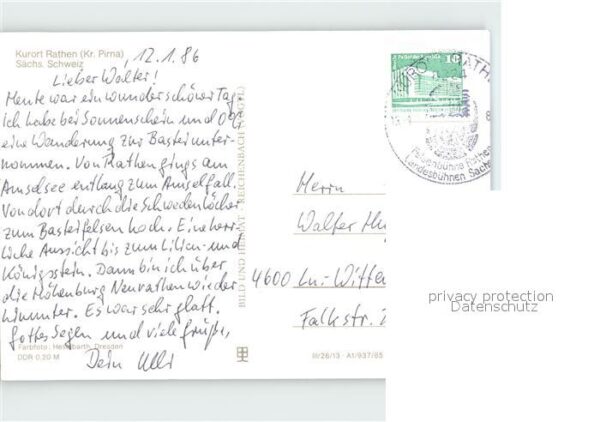 Kurort Rathen (Kr. Pirna)
Sächs. Schweiz
12.1.86
Lieber Walter!
Heute war ein wunderschöner Tag.
Ich habe bei Sonnenschein und 0°
eine Wanderung zur Bastei unter-
nommen. Von Rathen gings am
Amselsee entlang zum Amselfall.
Von dort durch die Schwedenlöcher
zum Basteifelsen hoch. Eine herr-
liche Aussicht bis zum Lilien- und
Königstein. Dann bin ich über
die Höhenburg Neurathen wieder
hinunter. Es war sehr glatt.
Gottes Segen und viele Grüße,
Dein Ulli
Farbfoto: Hesselbarth, Dresden
DDR 0,20 M
BILD UND HEIMAT REICHENBACH
III/26/13 A1/937/85
10
Felsenbühne Rathen
Landesbühnen Sachs
Herrn
Walter
4600 Lu.-Witten
Falkstr. 2
privacy protection
Datenschutz